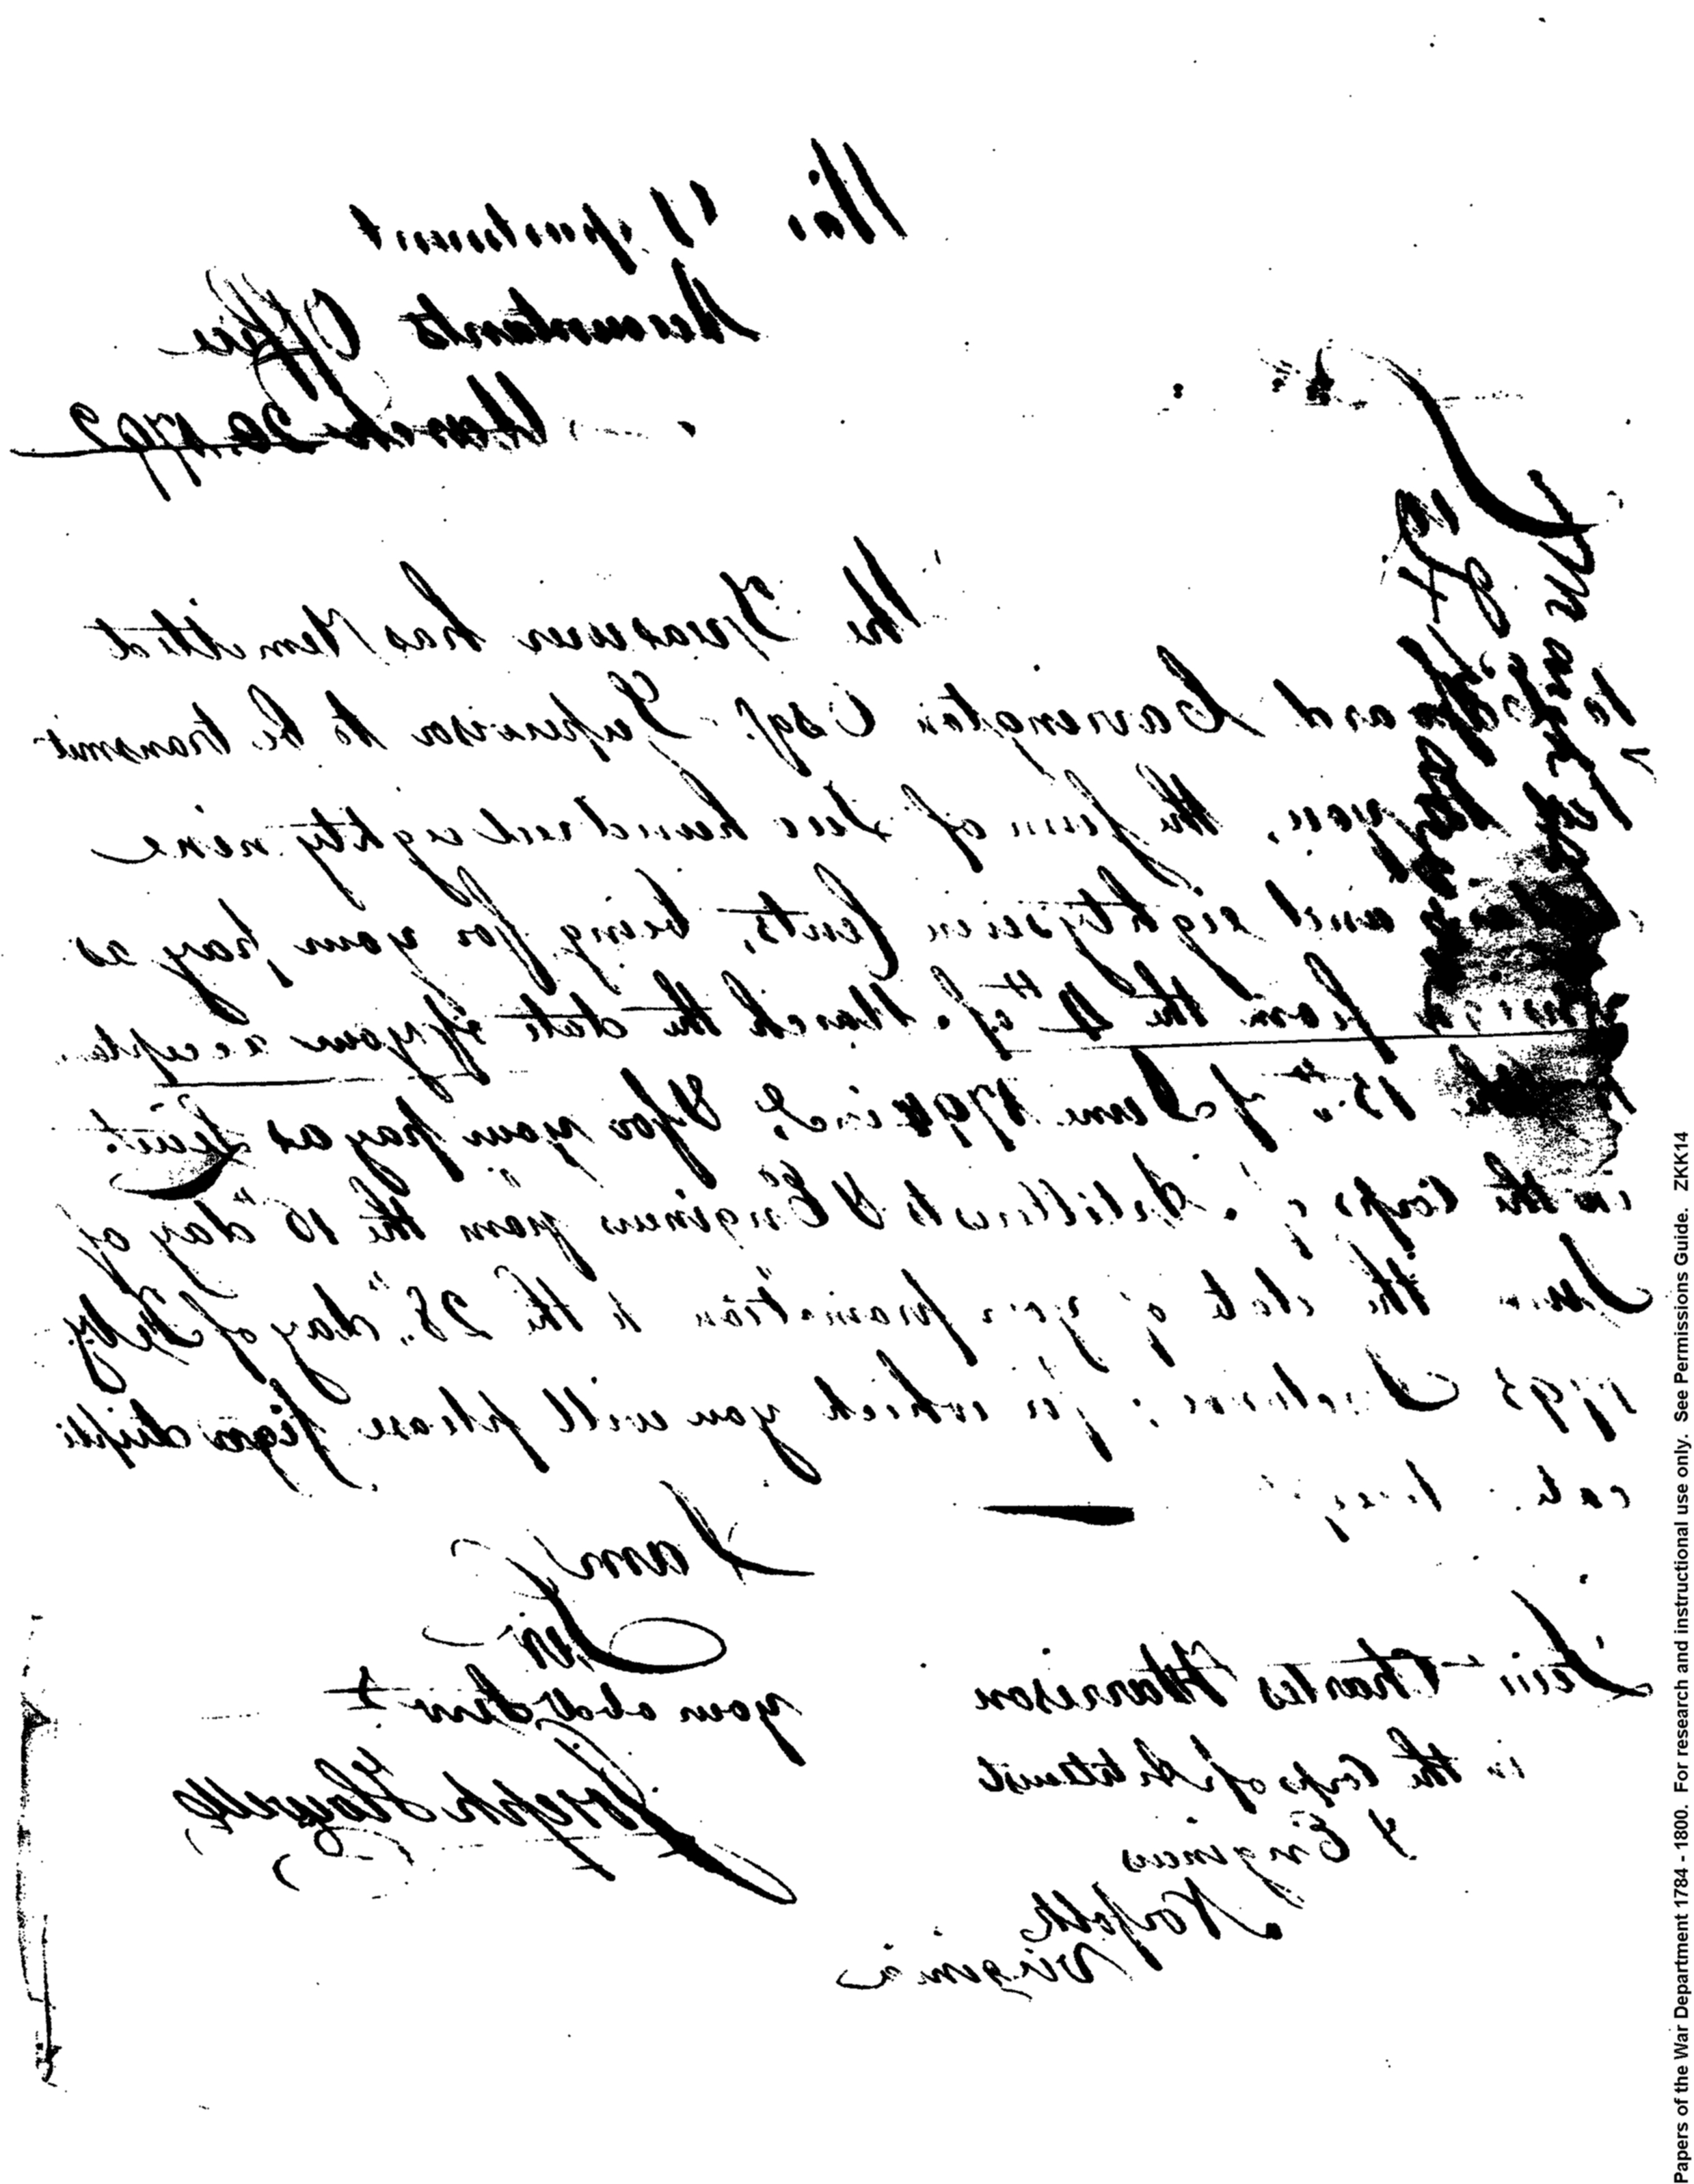 War Department
Accountants Office
March 20. 179
Sir
The Treasurer has Remitted
to Edward Carrington Esqr. Supervisor to be transmit-
to you, the sum of two hundred eighty nine
and eighty seven Cents, being for your pay as
from the 4th of March the date of your accepta-
15th of June 1794 incl, & for your pay as Lieut.
in the Corps of Artillerists & Engineers from the 16th day of
June the date of your promotion to the 28th day of Feby
1795 Inclusive; for which you will please sign dupli
cate
I am
Sir
your obdt Servt
Joseph Howell
Lieut Charles Harrison
in the Corps of Artillerist
& Engineers
Norfolk
Virginia
Papers of the War Department 1784 - 1800. For research and instructional use only. See Permissions Guide. ZKK14